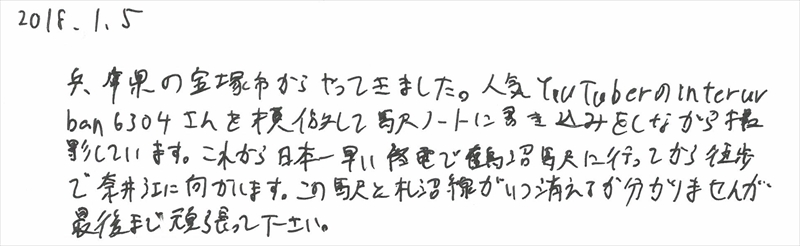 2018.1.5
兵庫県の宝塚市からやってきました。人気YouTuberのinterur
ban6304さんを模倣して駅ノートに書き込みをしながら撮
影しています。これから日本一早い終電で鶴沼駅に行ってから徒歩
で奈井江に向かいます。この駅と札沼線がいつ消えるか分かりませんが
最後まで頑張って下さい。